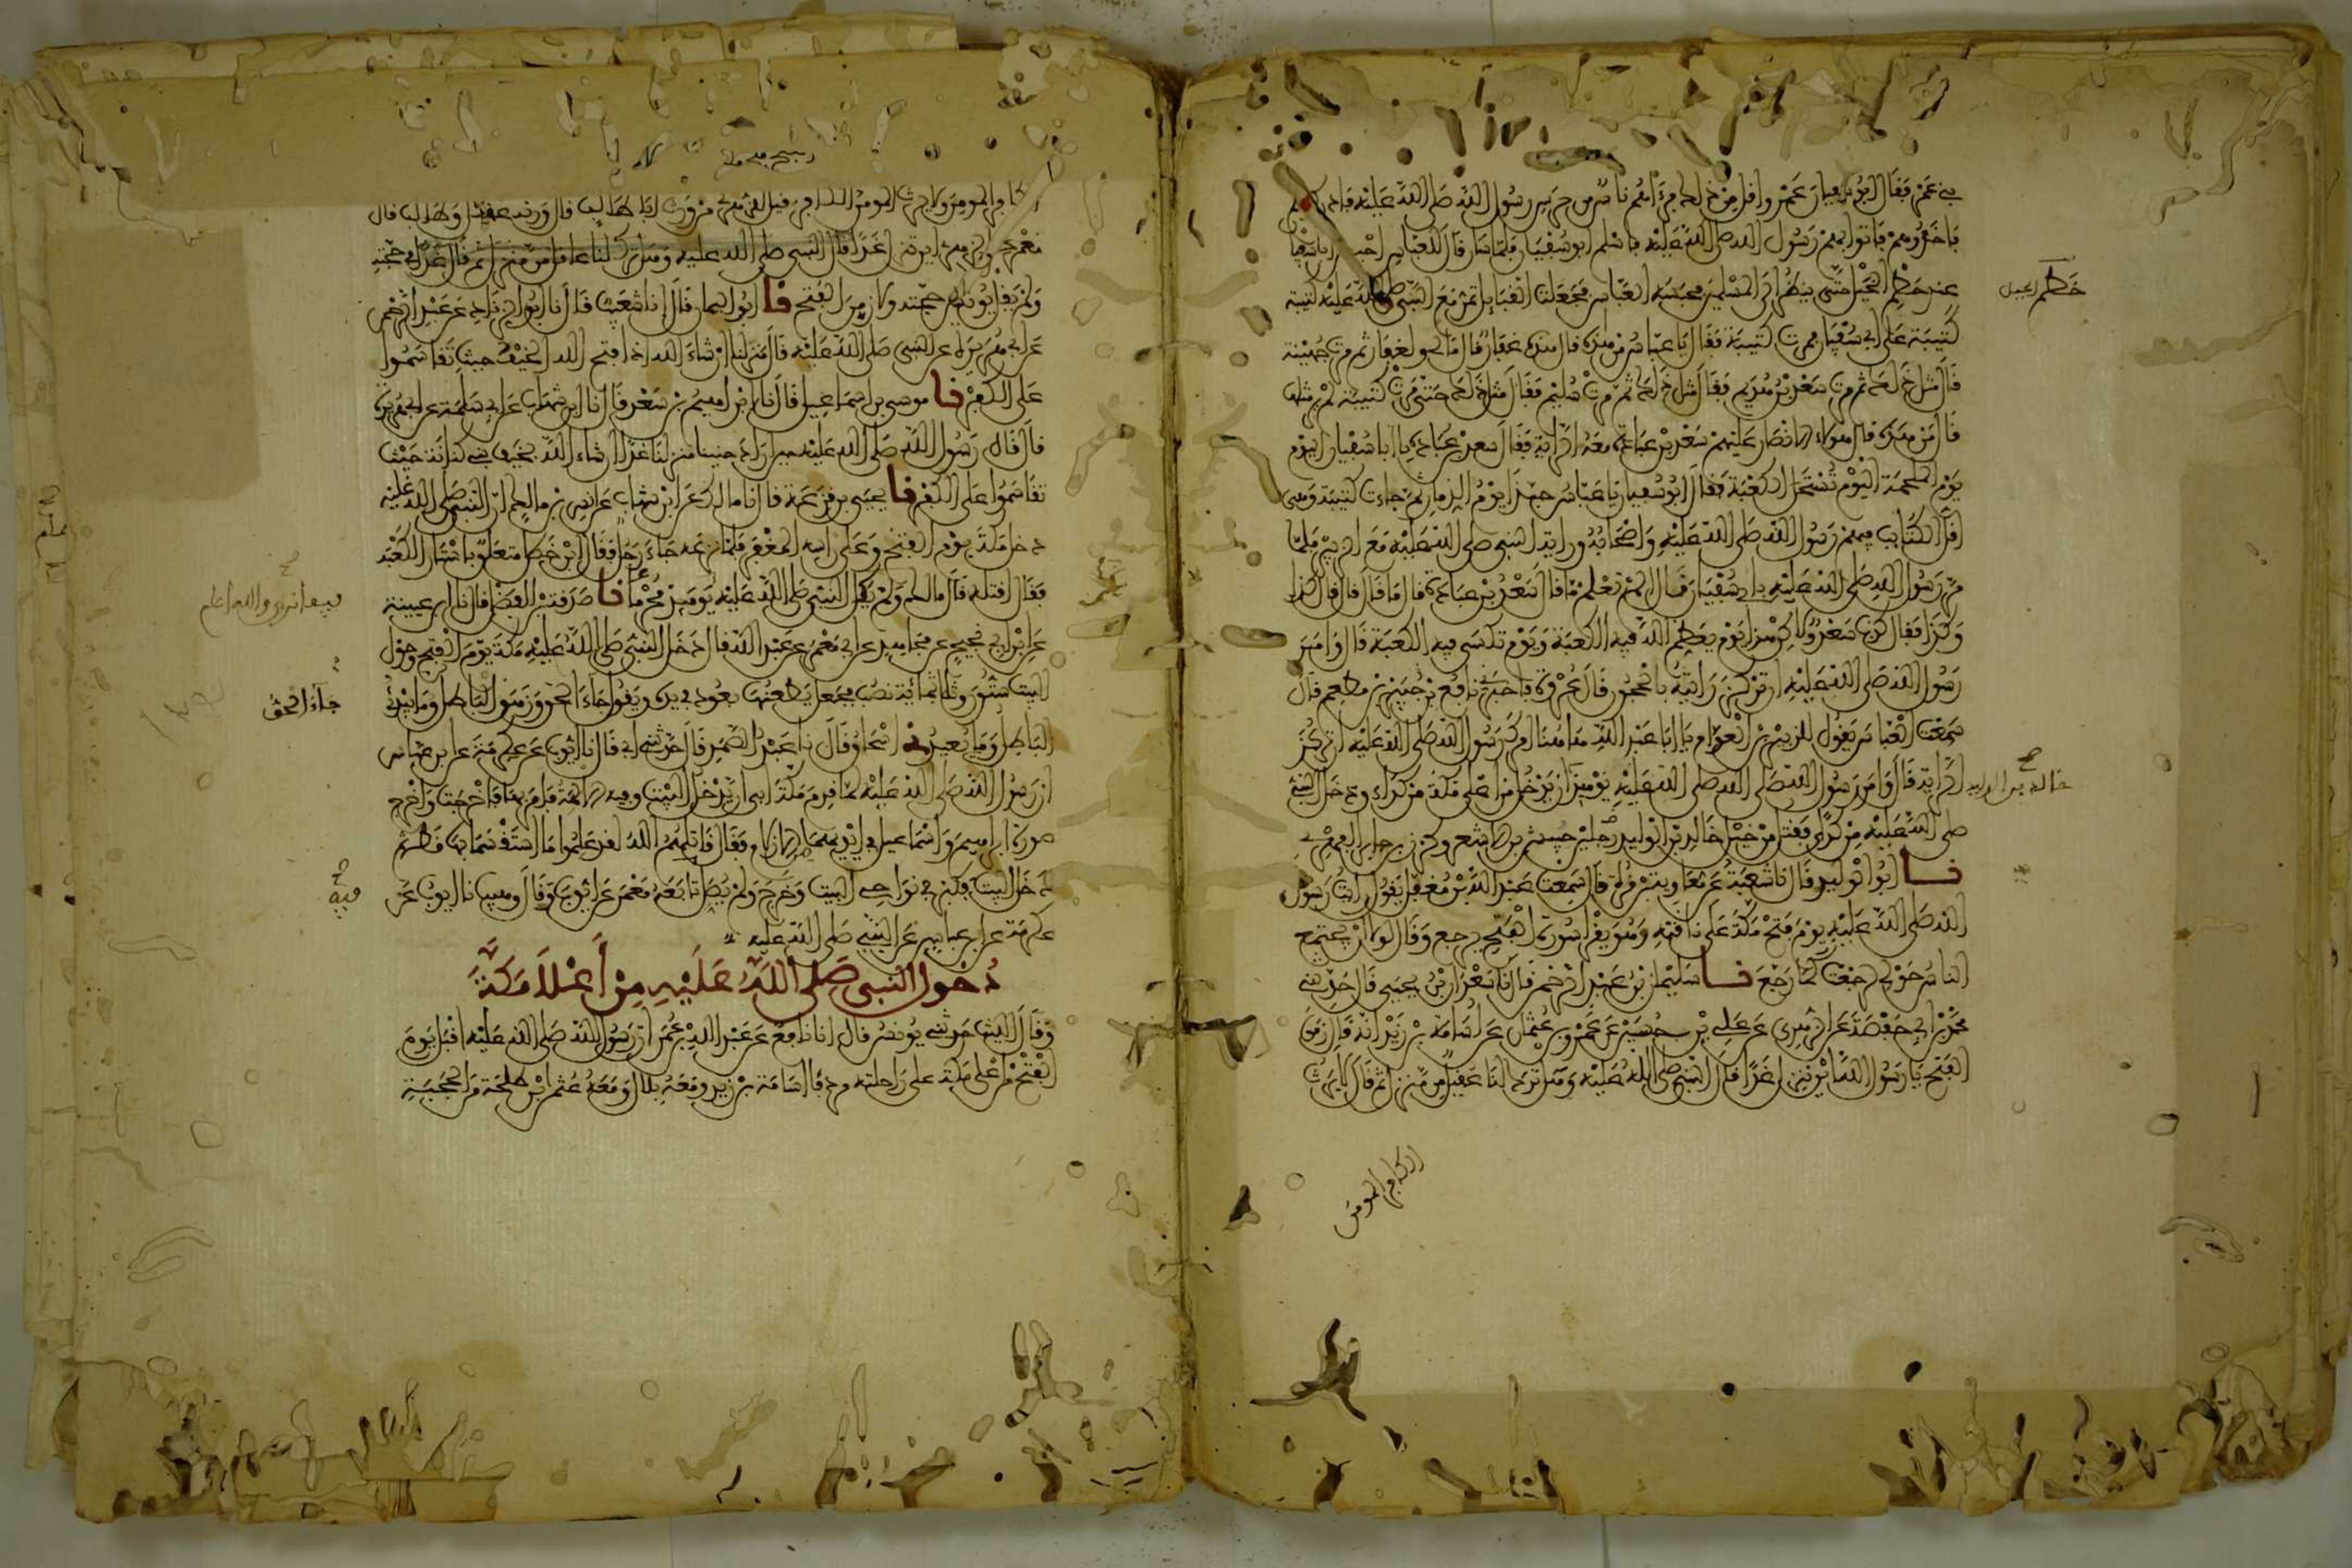 بني عمرو فقال ابو سفيان عمرو اقل من ذلك فرءاهم ناس من حرس رسول الله صلى الله عليه فادركوهم
فاخذوهم فاتوا بهم رسول الله صلى الله عليه فاسلم ابو سفيان فلما سار قال للعباس احبس ابا سفيان
عند خطم الخيل حتى ينظر الى المسلمين فحبسه العباس فجعلت القبايل تمر مع النبي صلى الله عليه كتيبة
كتيبة على ابي سفيان فمرت كتيبة فقال يا عباس من هذه قال هذه غفار قال ما لي ولغفار ثم مرت جهينة
قال مثل ذلك ثم مرت سعد بن هذيم فقال مثل ذلك ثم مرت سليم فقال مثل ذلك حتى مرت كتيبة لم ير مثلها
قال من هذه قال هولاء الانصار عليهم سعد بن عبادة معه الراية فقال سعد بن عبادة يا ابا سفيان اليوم
يوم الملحمة اليوم تستحل الكعبة فقال ابو سفيان يا عباس حبذا يوم الذمار ثم جاءت كتيبة وهي
اقل الكتايب فيهم رسول الله صلى الله عليه واصحابه وراية النبي صلى الله عليه مع الزبير فلما
مر رسول الله صلى الله عليه بابي سفيان قال الم تعلم ما قال سعد بن عبادة قال ما قال قال قال كذا
وكذا فقال كذب سعد ولاكن هذا يوم يعظم الله فيه الكعبة ويوم تكسى فيه الكعبة قال وامر
رسول الله صلى الله عليه ان تركز رايته بالحجون قال عروة فاخبرني نافع بن جبير بن مطعم قال
سمعت العباس يقول للزبير بن العوام يا ابا عبد الله هاهنا امرك رسول الله صلى الله عليه ان تركز
الراية قال وامر رسول الله صلى الله عليه يومئذ ان يدخل من اعلى مكة من كداء ودخل النبي
صلى الله عليه من كدى فقتل من خيل خالد بن الوليد رجلين حبيش بن الاشعر وكرز بن جابر الفهري
نا ابو الوليد قال نا شعبة عن معاوية بن قرة قال سمعت عبد الله بن مغفل يقول رايت رسول
الله صلى الله عليه يوم فتح مكة على ناقته وهو يقرا سورة الفتح يرجع وقال لولا ان يجتمع
الناس حولي لرجعت كما رجع نا سليمان بن عبد الرحمن قال نا سعدان بن يحيى قال حدثني
محمد بن ابي حفصة عن الزهري عن علي بن حسين عن عمرو بن عثمان عن اسامة بن زيد انه قال زمن
الفتح يا رسول الله اين تنزل غدا قال النبي صلى الله عليه وهل ترك لنا عقيل من منزل ثم قال لا يرث
الكافر المومن
خطم الخيل
خالد بن الوليد
الكافر المومن ولا يرث المومن الكافر قيل للزهري من ورث ابا طالب قال ورثه عقيل وطالب قال
معمر عن الزهري اين تنزل غدا قال النبي صلى الله عليه وهل ترك لنا عقيل من منزل ثم قال غدا في حجته
ولم يقل يونس حجته ولا زمن الفتح نا ابو اليمان قال نا شعيب قال نا ابو الزناد عن عبد الرحمن
عن ابي هريرة عن النبي صلى الله عليه قال منزلنا ان شاء الله اذا فتح الله الخيف حيث تقاسموا
على الكفر نا موسى بن اسماعيل قال نا ابراهيم بن سعد قال انا ابن شهاب عن ابي سلمة عن ابي هريرة
قال قال رسول الله صلى الله عليه حين اراد حنينا منزلنا غدا ان شاء الله بخيف بني كنانة حيث
تقاسموا على الكفر نا يحيى بن قزعة قال نا مالك عن ابن شهاب عن انس بن مالك ان النبي صلى الله عليه
دخل مكة يوم الفتح وعلى راسه المغفر فلما نزعه جاء رجل فقال ابن خطل متعلق باستار الكعبة
فقال اقتله قال مالك ولم يكن النبي صلى الله عليه يومئذ محرما نا صدقة بن الفضل قال نا ابن عيينة
عن ابن ابي نجيح عن مجاهد عن ابي معمر عن عبد الله قال دخل النبي صلى الله عليه مكة يوم الفتح وحول
البيت ستون وثلاثمائة نصب فجعل يطعنها بعود في يده ويقول جاء الحق وزهق الباطل وما يبدئ
الباطل وما يعيد نا اسحاق قال نا عبد الصمد قال حدثني ابي قال نا ايوب عن عكرمة عن ابن عباس
ان رسول الله صلى الله عليه لما قدم مكة ابى ان يدخل البيت وفيه الالهة فامر بها فاخرجت واخرج
صورة ابراهيم واسماعيل في ايديهما الازلام فقال قاتلهم الله لقد علموا ما استقسما بها قط ثم
دخل البيت فكبر في نواحي البيت وخرج ولم يصل تابعه معمر عن ايوب وقال وهيب نا ايوب عن
عكرمة عن ابن عباس عن النبي صلى الله عليه
دخول النبي صلى الله عليه من اعلا مكة
وقال الليث حدثني يونس قال انا نافع عن عبد الله بن عمر ان رسول الله صلى الله عليه اقبل يوم
الفتح من اعلى مكة على راحلته مردفا اسامة بن زيد ومعه بلال ومعه عثمن ابن طلحة من الحجبة
فيما نرى والله اعلم
جاء الحق
فيه